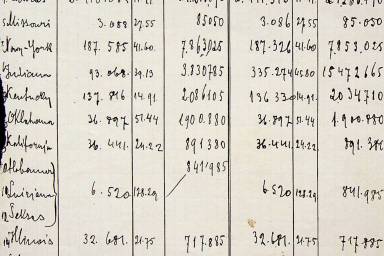 Missouri 3.088 27.55 85050 3.086 27.55 85.050
New-York 187.585 41.60 7.863025 187.326 41.60 7.853.025
Indiana 93.068 39.13 3.830785 335.274 45.80 15472665
Kentucky 137.816 14.91 2086105 136.330 14.91 2034710
Oklahoma 36.897 51.44 1900.880 36.897 51.44 1.900.880
Kaliforija 36.441 24.22 891380 36.441 24.22 891.380
Alabama 841985
10 Luisjana 6.520 128.29 6.520 128.29 841.985
Teksas
14 Illinois 32.681. 21.75 717.885 32.681. 21.75 717.885